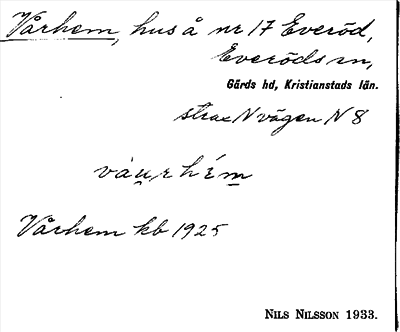 Vårhem, hus å nr 17 Everöd,
Everöds sn,
Gärds hd, Kristianstads län.
strax N vägen N 8
våu̯rhém
Vårhem kb 1925
Nils Nilsson 1933.